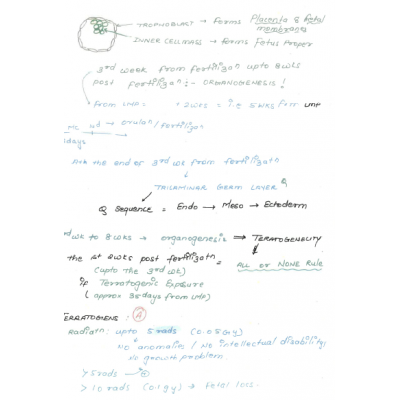 TROPHOBLAST → Forms Placenta & Fetal membranes
INNER CELL MASS → forms Fetus Proper
3rd week from fertilizan upto 8 wks
post fertilizan :- ORGANOGENESIS !
From LMP = + 2 wks = i.e 5 wks frm LMP
→ ovulan / fertilizan
14 days
At the end of 3rd wk from fertilizatn
↓
TRILAMINAR GERM LAYER Q
Q Sequence = Endo → Meso → Ectoderm
rd wk to 8 wks → organogenesis ⇒ TERATOGENECITY
the 1st 2 wks post fertilizatn = ALL or NONE Rule
(upto the 3rd wk)
if Terratogenic Exposure
( approx 35 days from LMP)
ERRATOGENS : A
Radiatn : upto 5 rads (0.05 Gy)
No anomalies / No intellectual disability,
No growth problem.
> 5 rads →
> 10 rads (0.1 gy) → Fetal loss.